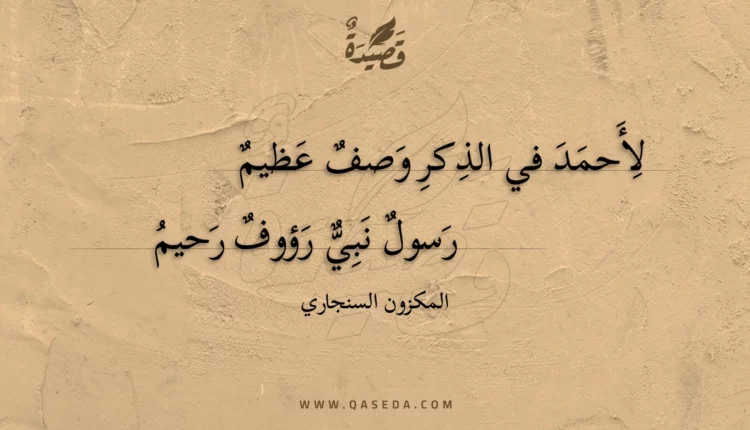 قَصيدَةٌ
لِأَحمَدَ في الذِكرِ وَصفٌ عَظيمٌ
رَسولٌ نَبِيٌّ رَؤوفٌ رَحيمُ
المكزون السنجاري
WWW.QASEDA.COM